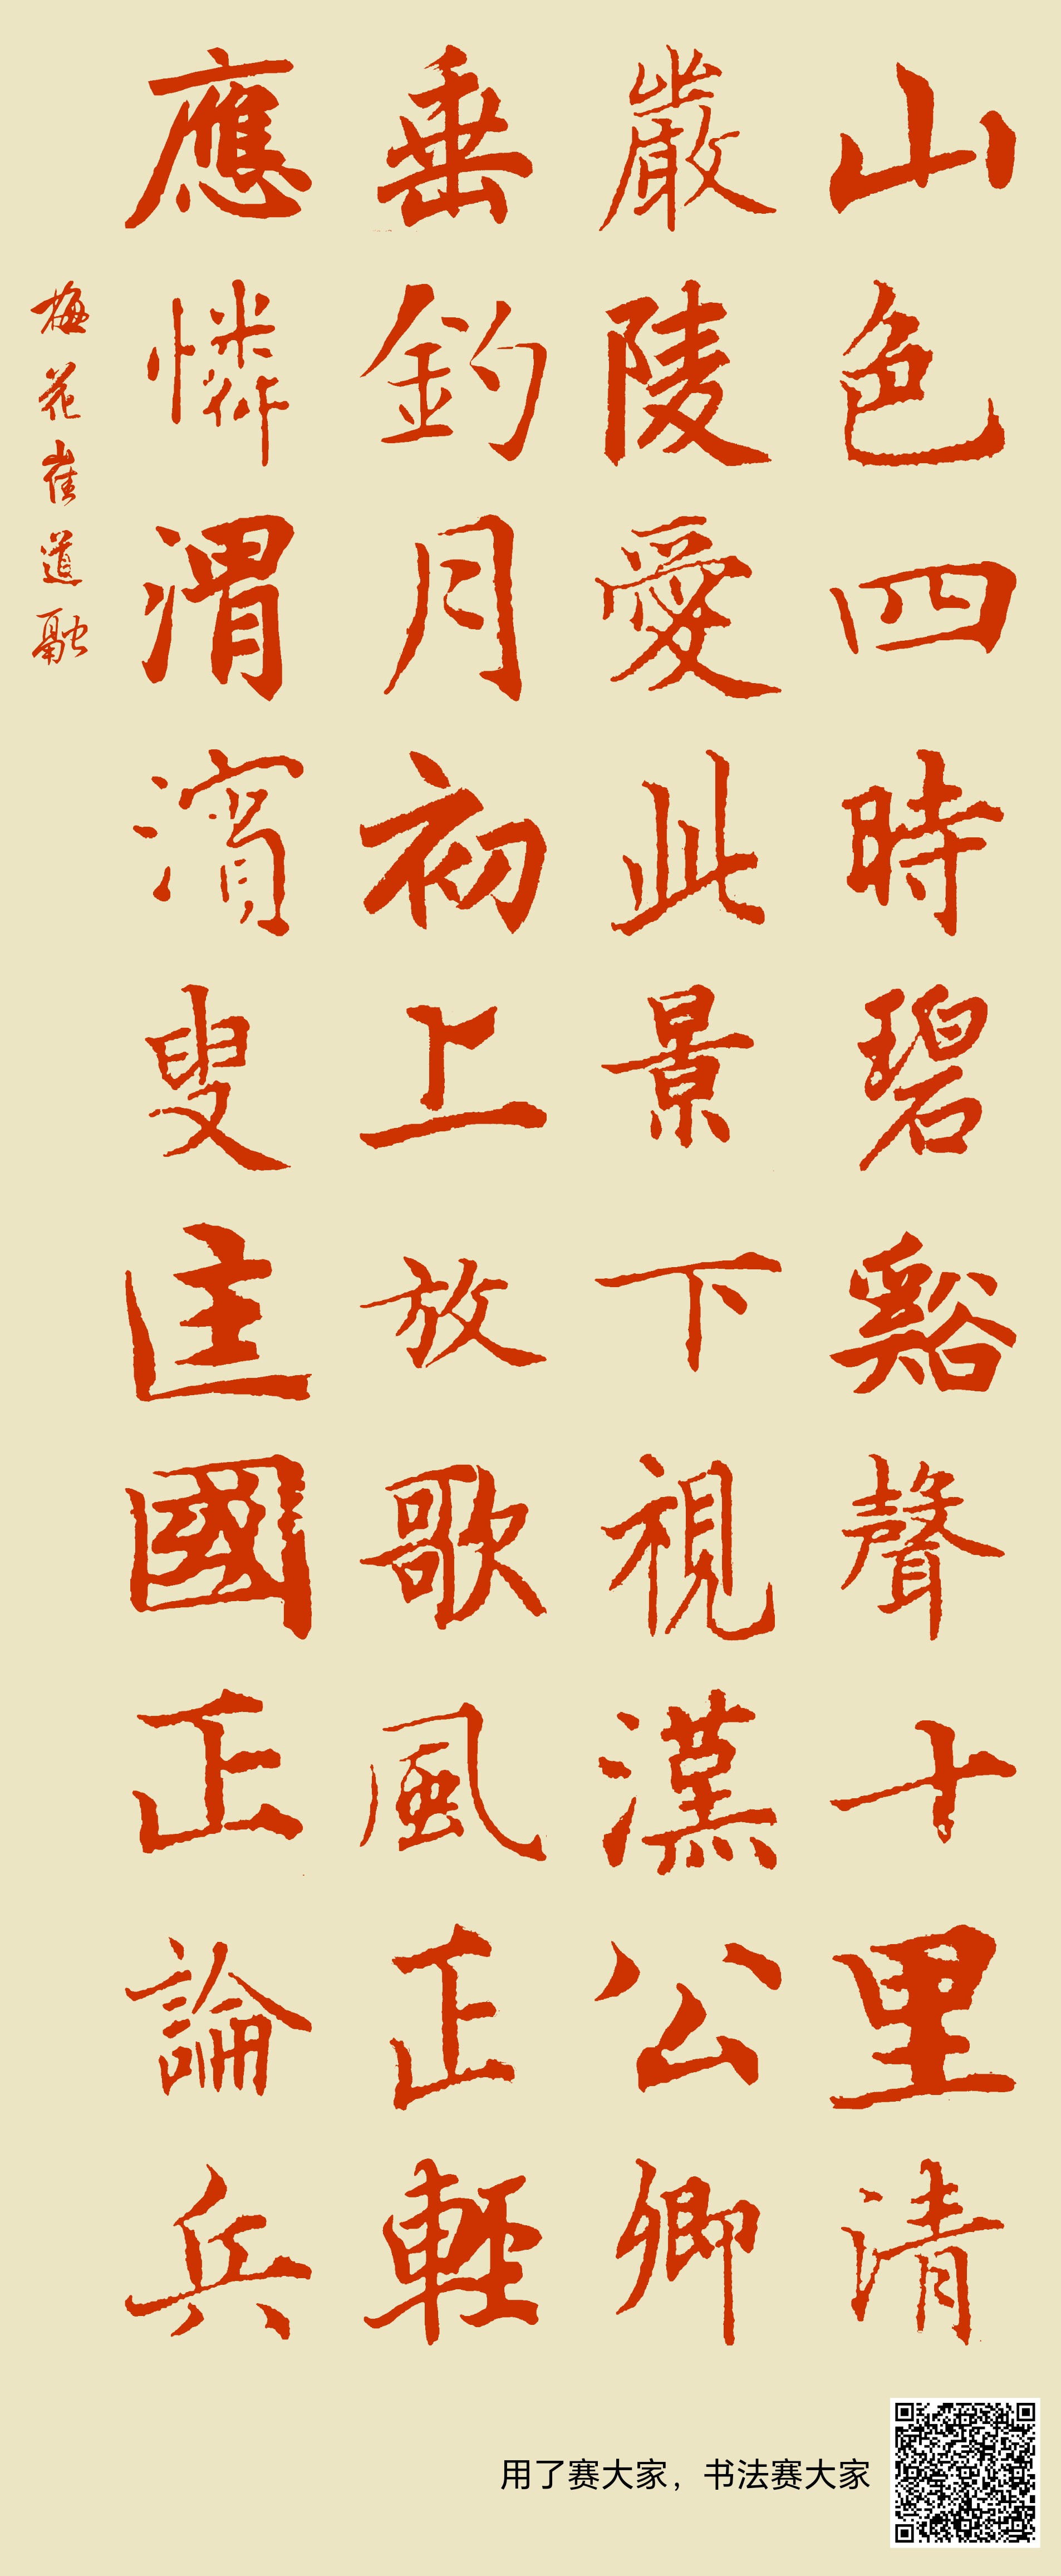 山色四時碧谿聲十里清
嚴陵愛此景下視漢公卿
垂釣月初上放歌風正輕
應憐渭濱叟匡國正論兵
梅花崔道融
用了赛大家，书法赛大家